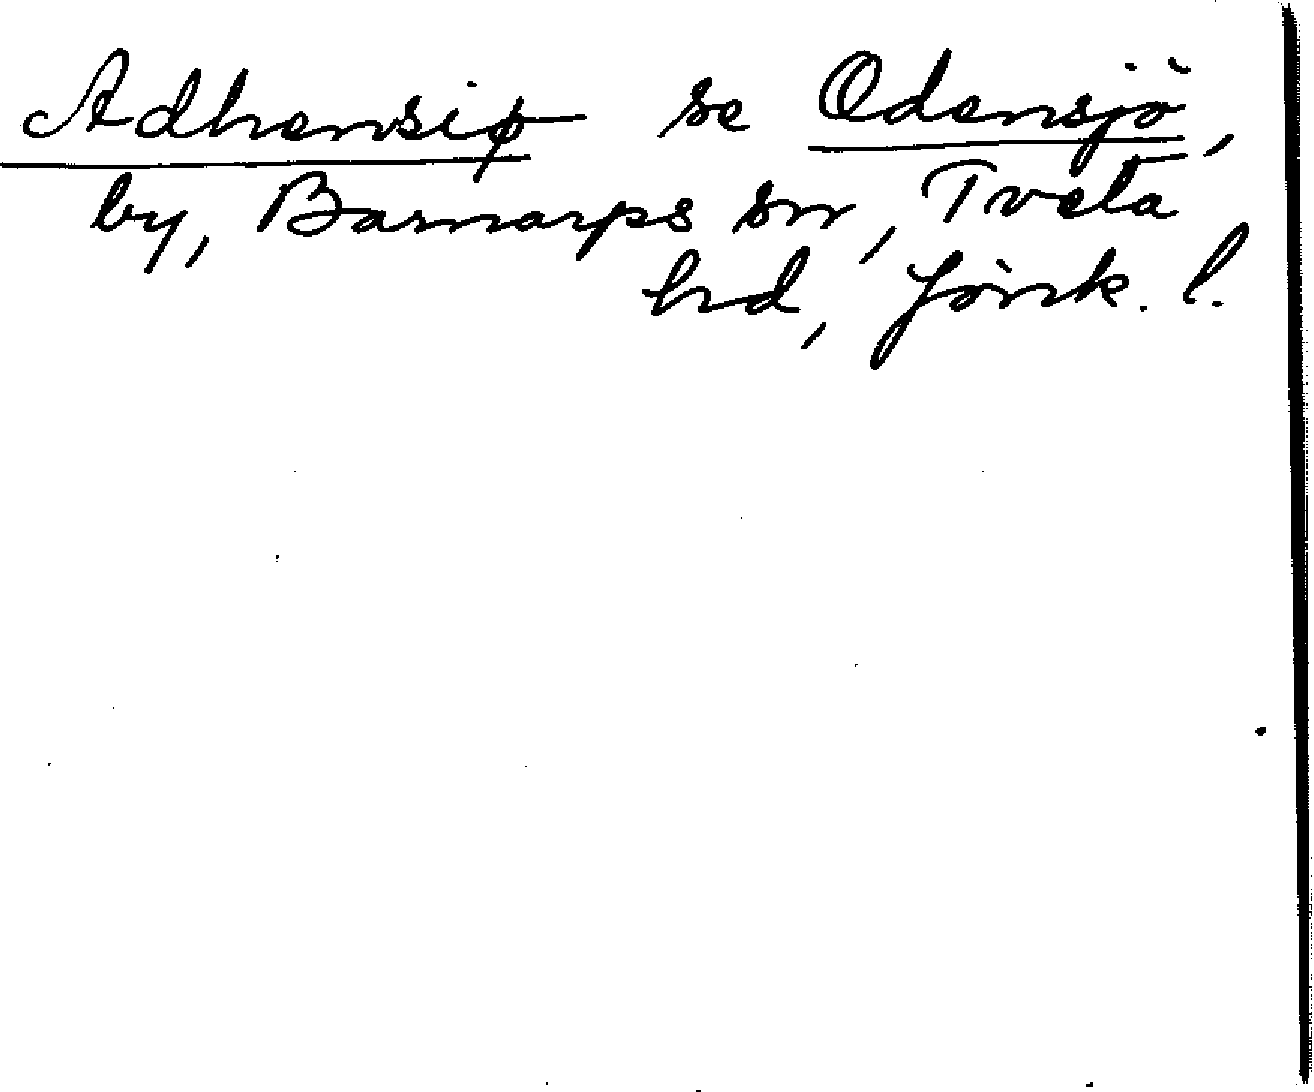 Adhensiø se Odensjö,
by, Barnarps sn, Tveta
hd, Jönk. l.